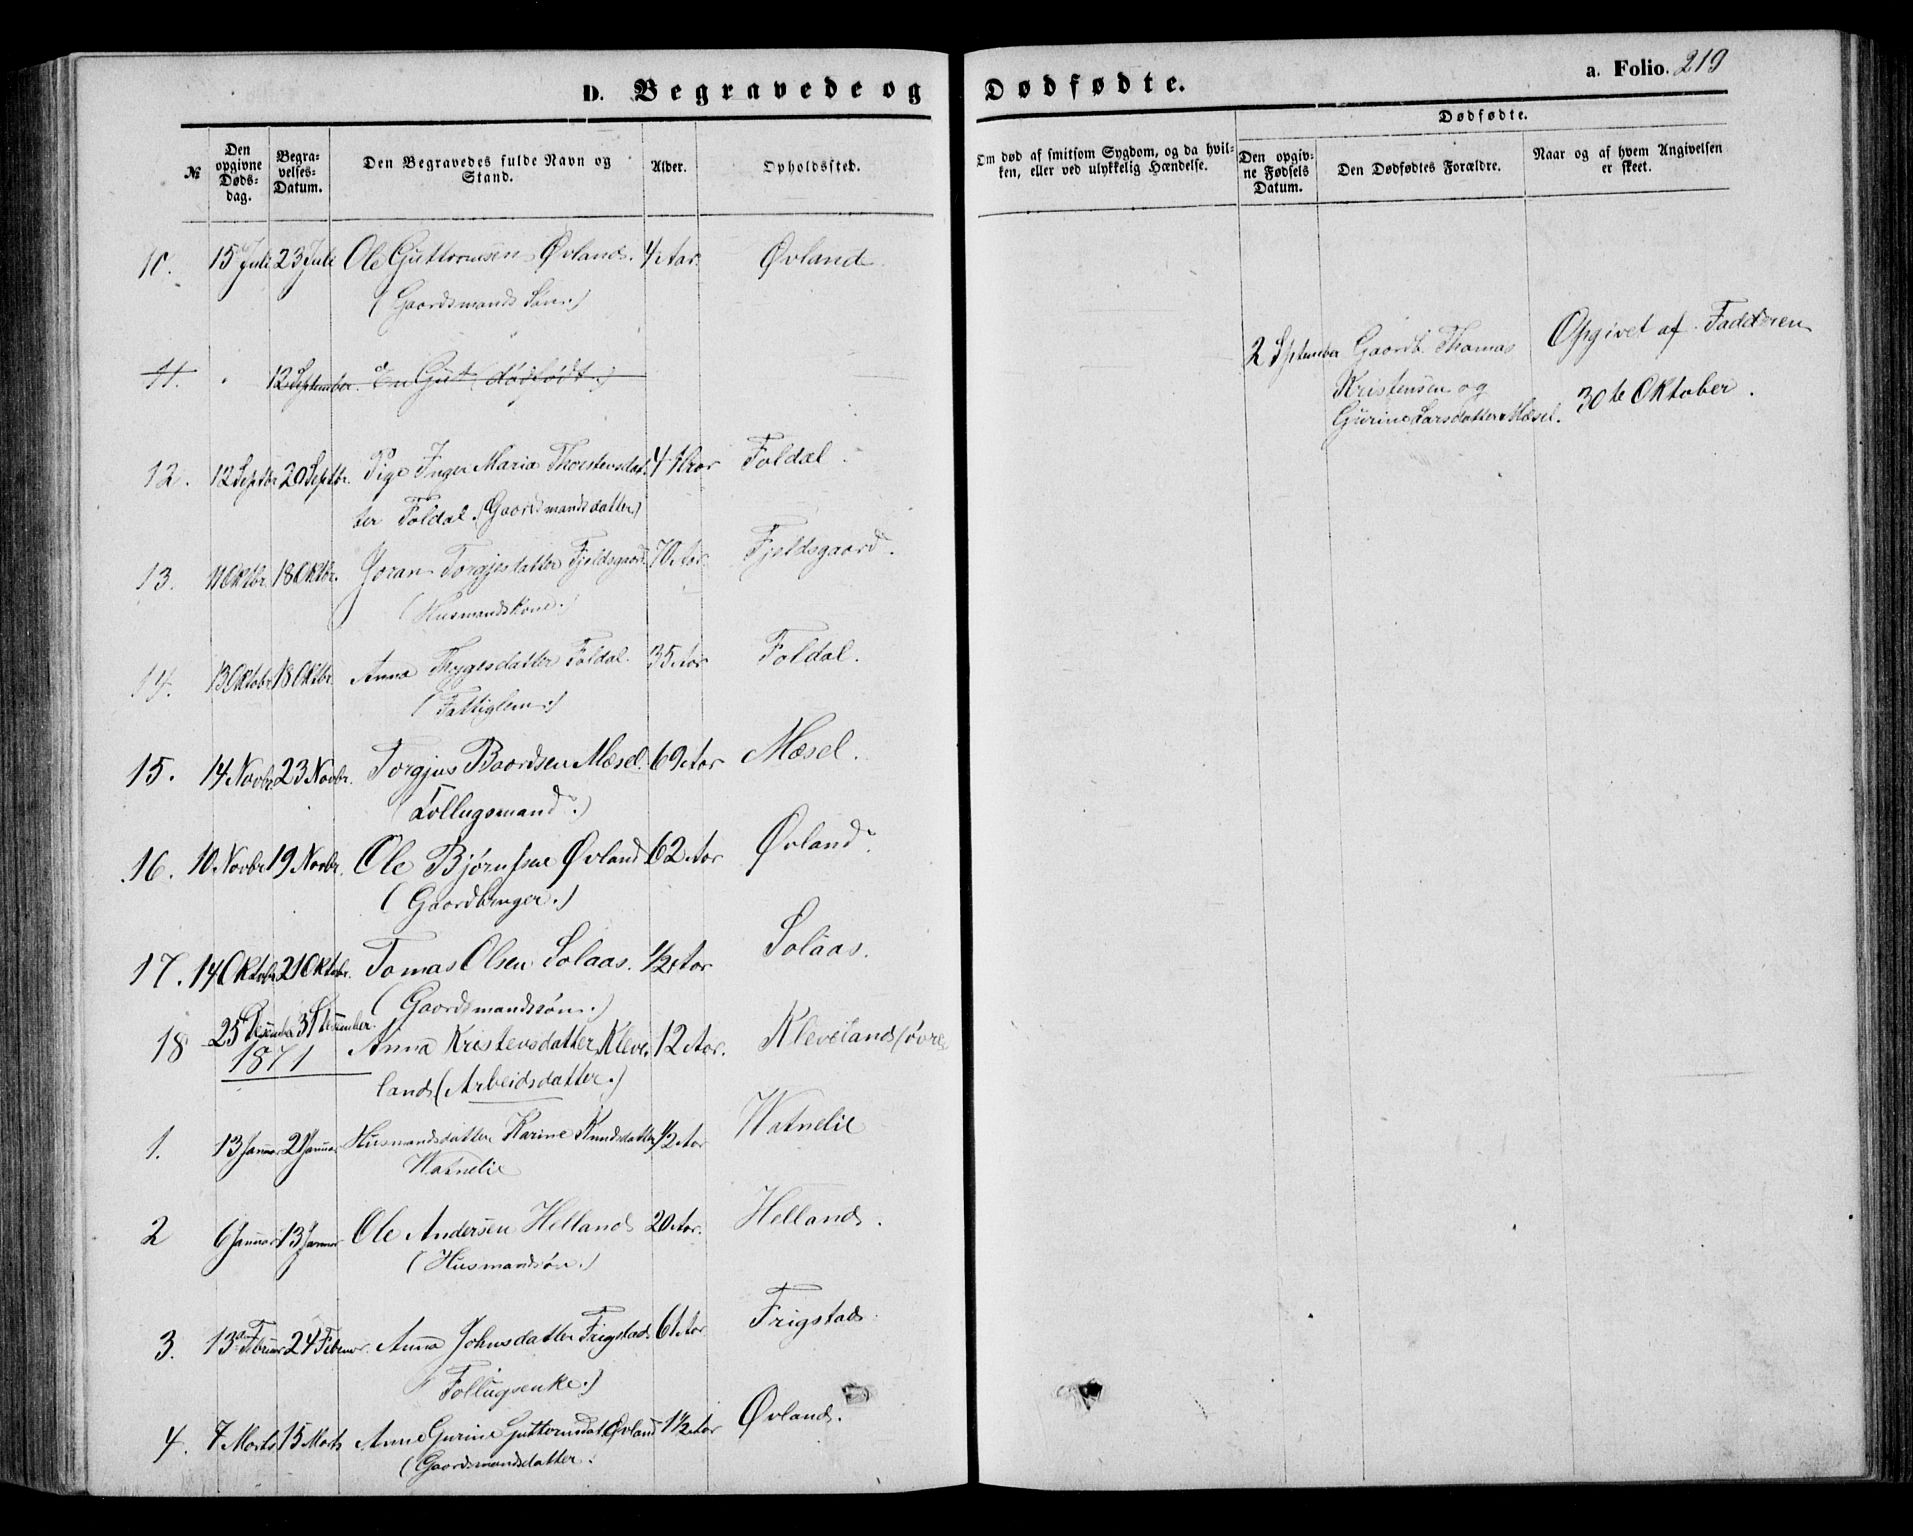 D. Begravede og Dødfødte.
a. Folio. 219
№
Den opgivne Døds-dag.
Begra-velses-Datum.
Den Begravedes fulde Navn og Stand.
Alder.
Opholdssted.
Om død af smitsom Sygdom, og da hvil-ken, eller ved ulykkelig Hændelse.
Dødfødte.
Den opgiv-ne Fødsels Datum.
Den Dødfødtes Forældre.
Naar og af hvem Angivelsen er skeet.
10. 15 Juli 23 Juli Ole Guttormsen Øvland. 4 Aar. Øvland
(Gaardsmands Søn.)
11. 12 September. En Gut dødfødt.)
2 September Gaardb. Thomas
Kristensen og
Gurine Larsdatter Mæsel.
Opgivet af Fadderen
30te Oktober.
12. 12 Septbr 20 Septbr. Pige Inger Maria Thorstensdat- 4 Aar Foldal.
ter Foldal. (Gaardmandsdatter)
13. 11 Oktbr. 18 Oktbr. Joran Torgjesdatter Fjeldsgaard 70 Aar. Fjeldsgaard.
(Husmandskone.)
14. 13 Oktobr 18 Oktbr. Anna Thygesdatter Foldal. 35 Aar Foldal.
(Fattiglem.)
15. 14 Novbr. 23 Novbr. Torgjus Baardsen Mæsel. 69 Aar Mæsel.
(Follugsmand.)
16. 10 Novbr 19 Novbr. Ole Bjørnsen Øvland 62 Aar Øvland.
(Gaardbruger.)
17. 14 Oktobr 21 Oktobr. Tomas Olsen Solaas. 1/2 Aar Solaas.
(Gaardsmandssøn.)
18 25 Desember 31 Desember. Anna Kristensdatter Kleve- 12 Aar. Kleveland (øvre
land (Arbeidsdatter.)
1871
1. 13 Januar 21 Januar Husmandsdatter Karine Knudsdatter 1/2 Aar Watnelie
Watnelie
2 6 Januar 13 Januar Ole Andersen Helland 20 Aar. Helland.
(Husmandsøn.)
3. 13de Februar 24 Februar. Anna Johnsdatter Frigstad 61 Aar Frigstad.
Follugsenke.)
4. 7 Marts 15 Marts Anne Gurine Guttormsdat. Øvland 1 1/2 Aar Øvland.
(Gaardsmandsdatter.